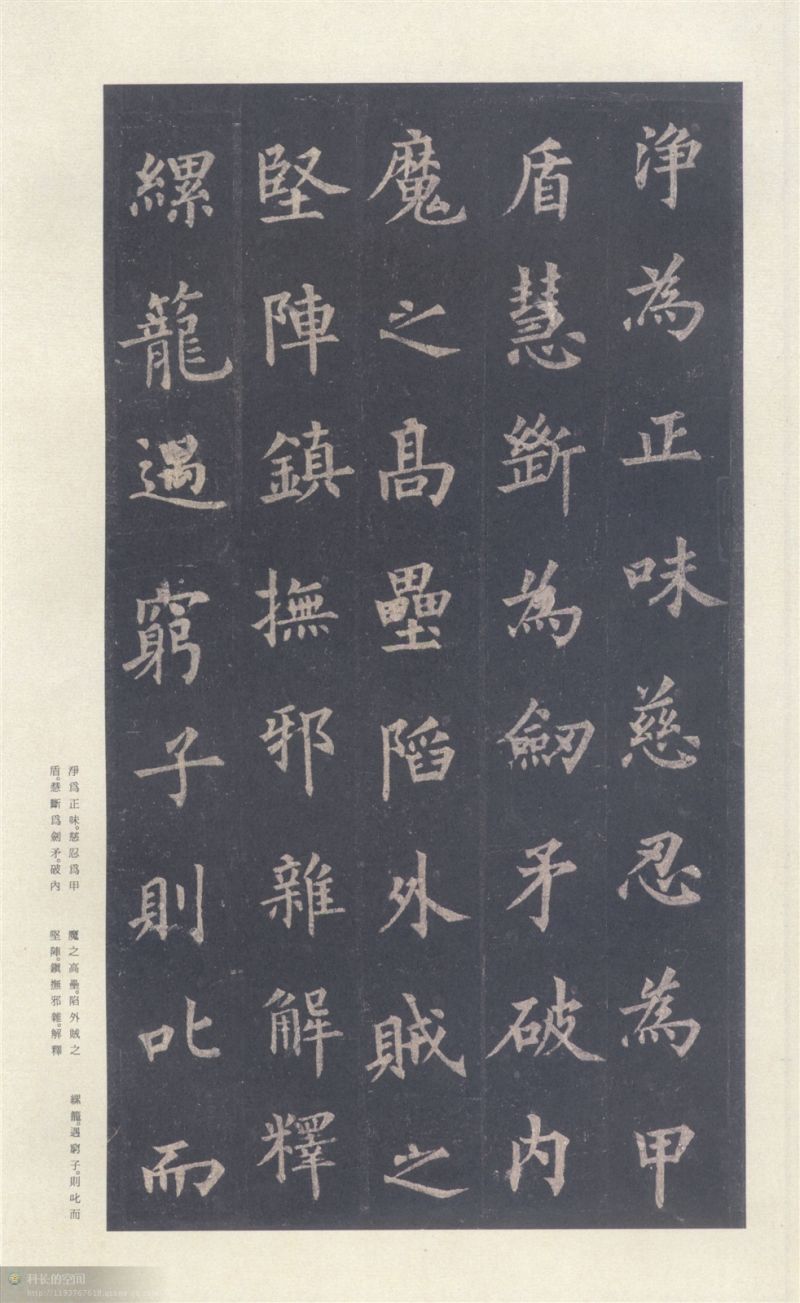 淨為正味慈忍為甲
盾慧斷為劒矛破内
魔之高壘陷外賊之
堅陣鎮撫邪雜解釋
縲籠遇窮子則叱而
淨爲正味。慈忍爲甲
盾。慧斷爲劍矛。破內
魔之高壘。陷外賊之
堅陣。鎭撫邪雜。解釋
縲籠。遇窮子。則叱而
科长的空间